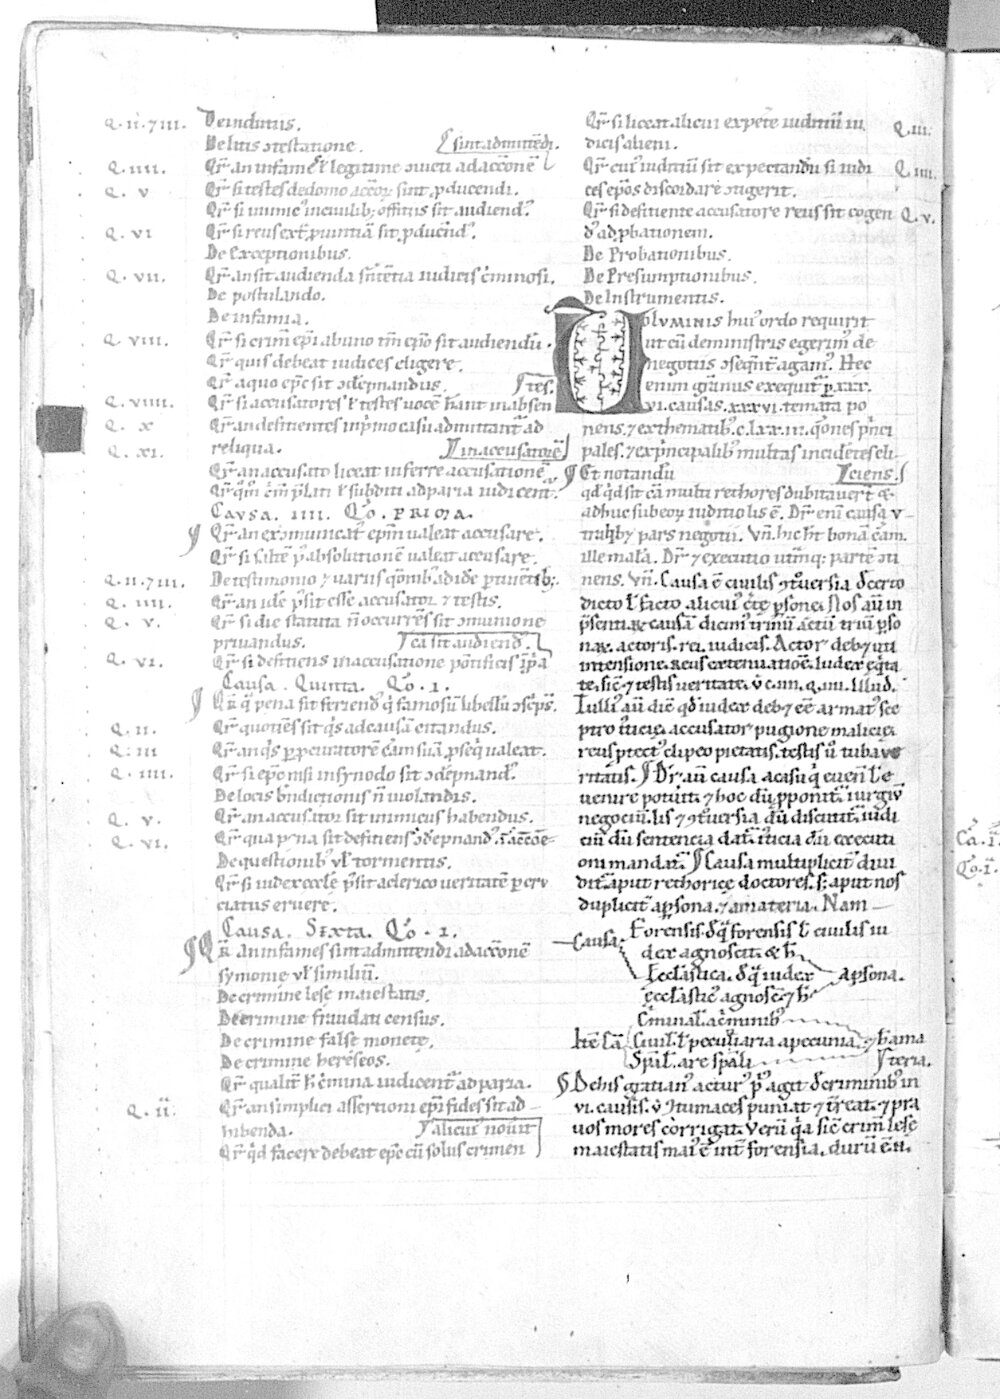 Q. ii. 7 iii. De indutiis.
De litis ɔtestatione. sint admittēdi.
Q. iiii. Qr̄ an infames ł legitime ɔuicti ad accōnē
Q. v Qr̄ si testes de domo accōꝝ sint ꝓducendi.
Qr̄ si inimic' in ciuilib; offitiis sit audiend'.
Q. vi
De exceptionibus.
Q. vii. Qr̄ an sit audienda sn̄tētia iudicis c̄minosi.
De postulando.
De infamia.
Q. viii. Qr̄ si crim̄ ep̄i ab uno tm̄ ep̄o sit audiendū.
Qr̄ quis debeat iudices eligere.
Qr̄ a quo ep̄c sit ɔdēpnandus. tes.
Q. viiii. Qr̄ si accusatores ł testes uocē h̄ant in absen
Q. x Qr̄ an defitientes in p̄mo casu admittant̄ ad
Q. xi. reliqua. in accusatōiē
Qr̄ an accusato liceat inferre accusationē
Qr̄ q̄m c̄m p̄lati ł subditi ad paria iudicent̄.
CAVSA. IIII. Qō. PRIMA.
Qr̄ an exɔmunicat' ep̄m ualeat accusare.
Qr̄ si saltē p' absolutionē ualeat accusare.
Q. ii. 7 iii. De testimonio 7 uariis
Q. iiii. Qr̄ an idē p'sit esse accusator 7 testis.
Q. v. Qr̄ si die statuta n̄ occurrēs sit ɔmunione
priuandus. ca sit audiend'.
Q. vi. Qr̄ si defitiens in accusatione pōtificis ip̄a
Causa. Quinta. Qō. 1.
Qr̄ q̄ pena sit feriend' q̄ famosū libellū ɔsc̄ps̄.
Q. ii. Qr̄ quotiēs sit q's ad causā citandus.
Q. iii Qr̄ an q's ꝑ ꝓcuratorē cām suā ꝓseq̄ ualeat.
Q. iiii. Qr̄ si ep̄c n̄isi in synodo sit ɔdēpnand'.
De locis bn̄dictionis n̄ uiolandis.
Q. v. Qr̄ an accusator sit inimicus habendus.
Q. vi. Qr̄ qua pena sit defitiens ɔdēpnand' ī accōne
De questionib' uł tormentis.
Qr̄ si iudex eccłe p'sit a clerico ueritatē ꝑ cru
ciatus eruere.
Causa. Sexta. Qō. 1.
Qr̄ an infames sint admittendi ad accōnē
symonie uł similiū.
De crimine lese maiestatis.
De crimine fraudati census.
De crimine false monetę.
De crimine hereseos.
Qr̄ qualit̄ h̄ c̄mina iudicent̄ ad paria.
Q. ii. Qr̄ an simplici assertioni ep̄i fides sit ad
hibenda. alicui' nouit
Qr̄ q'd facere debeat ep̄c cū solus crimen
Qr̄ si liceat alicui expete iuditiū iu Q. iii.
dicis alieni.
Qr̄ cui' iuditiū sit expectandū si iudi Q. iiii.
ces ep̄os discordare ɔtigerit.
Qr̄ si defitiente accusatore reus sit cogen Q. v.
d' ad ꝓbationem.
De Probationibus.
De Presumptionibus.
De Instrumentis.
VOLVMINIS hui' ordo requirit
ut cū de ministris egerim' de
negotiis ɔseq̄nt̄ agam'. Hec
enim ḡtianus exequit̄ ꝑ xxx.
vi. causas. xxxvi. temata po
nens. 7 ex thematib' c.lxx.iii. q̄ones p'nci
pales. 7 ex p'ncipalib' multas incidētes eli
Et notandū ciens.
qd q'd sit cā multi rethores dubitauer̄t &
adhuc sub eoꝝ iuditio lis ē. Dr̄ eni causa u
triusq; pars negotii. Vn̄. hic h̄t bonā cām.
ille malā. Dr̄ 7 executio utriusq; partē ɔti
nens. Vn̄. Causa ē ciuilis ɔt'uersia de certo
dicto ł facto alicui' c̄te psone. Nos aū in
p̄senti causā dicim' trinū actū triū pso
naꝝ. actoris. rei. iudicis. Actor deb7 uti
intensione. Reus extenuatiōe. Iudex eq̄ta
te. sic̄ 7 testis ueritate.
Tulli' aū dic̄ qd iudex deb7 eē armat' sce
ptro iusticię. accusator pugione malicię.
reus ptect' clipeo pietatis. testis u' tuba ue
ritatis. Dr̄ aū causa a casu q̄ euen̄ ł e
uenire potuit. 7 hoc dū ꝓponit̄. iurgiū
negociū. Lis 7 ɔt'uersia dū discutit̄. iudi
ciū dū sentencia dat̄. iusticia dū executi
oni mandat̄. Causa multiplicit̄ diui
dit̄ aput rethorice doctores. s; aput nos
duplicit̄ a psona. 7 a materia. Nam
Causa. Forensis. d' q̄ forensis ł ciuilis iu
dex agnoscit. & h̄
Eccłastica. d' q̄ iudex a psona.
eccłastic' agnosc̄. 7 h̄
C̄minal. a c̄minib'
Itē cā Ciuil. ł peculiaria a pecunia. 7 h̄ a ma
Sp̄al. a re sp̄ali teria.
De his gratian' actur' p' agit de criminib' in
vi. causis. ut ɔtumaces puniat 7 t̄reat. 7 pra
uos mores corrigat. Verū q̄a sic̄ crim̄ lese
maiestatis mai' ē int̄ forensia.
Ca. i.
Qō. i.